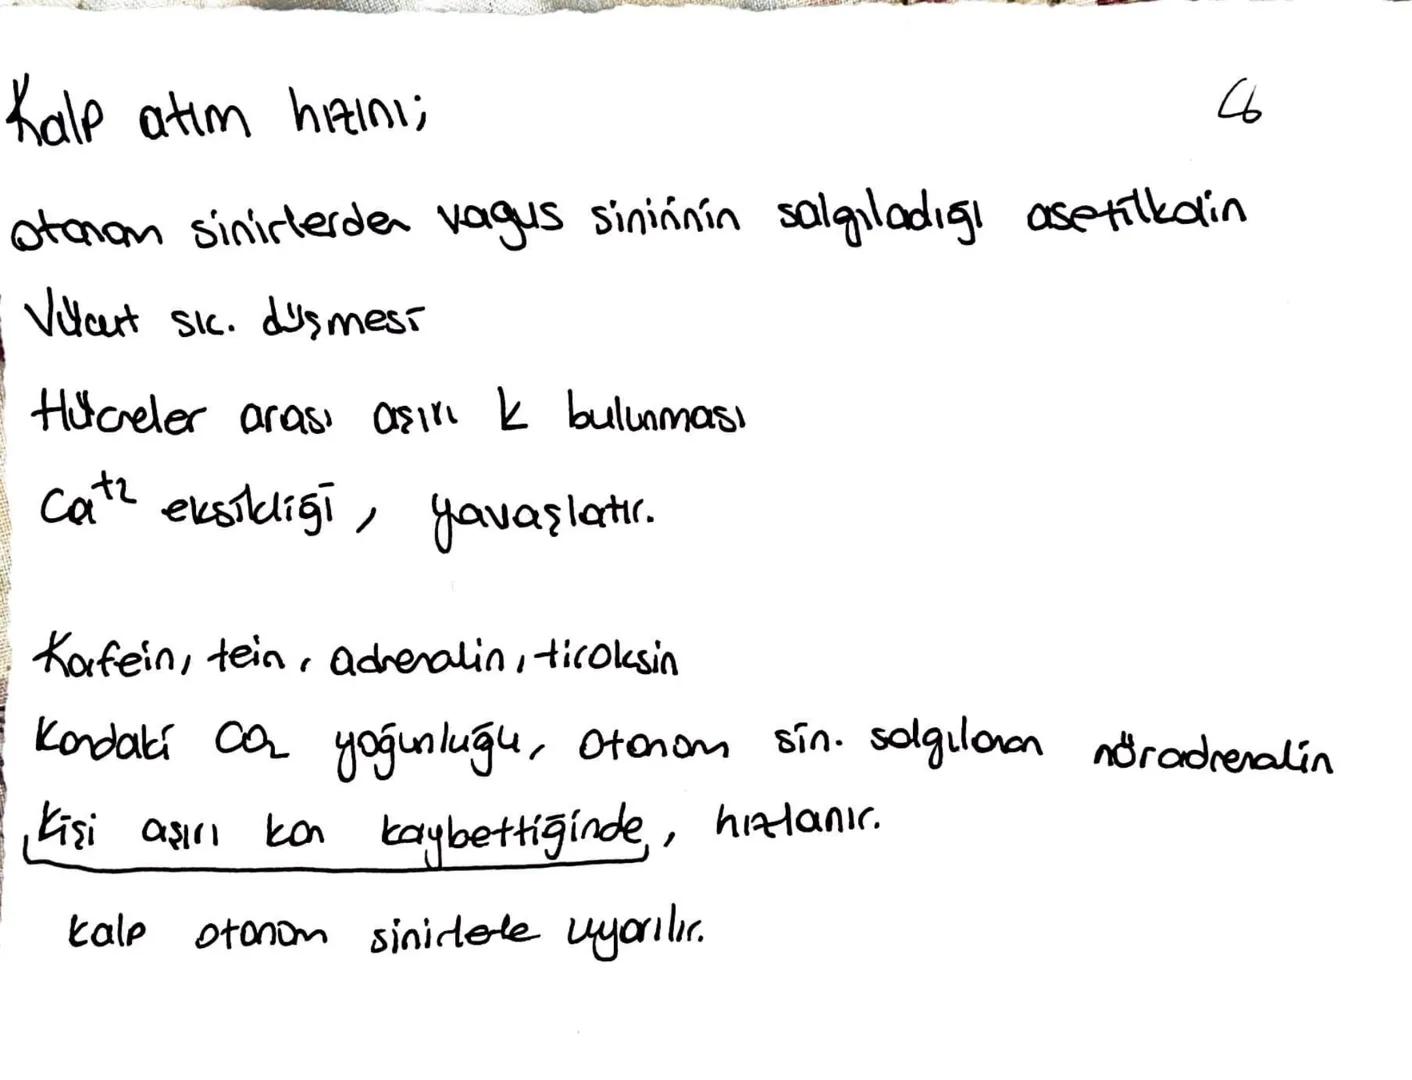 Kalp atım hızını;
otonom sinirlerden vagus sinirinin salgıladığı asetilkolin
Vücut sıc. düşmesi
Hücreler arası aşırı K bulunması
Ca+2 eksikliği, yavaşlatır.
Kafein, tein, adrenalin, tiroksin
Kandaki CO2 yoğunluğu, otonom sin. salgılanan nöradrenalin
Kişi aşırı kan kaybettiğinde, hızlanır.
Kalp otonom sinirlerle uyarılır.